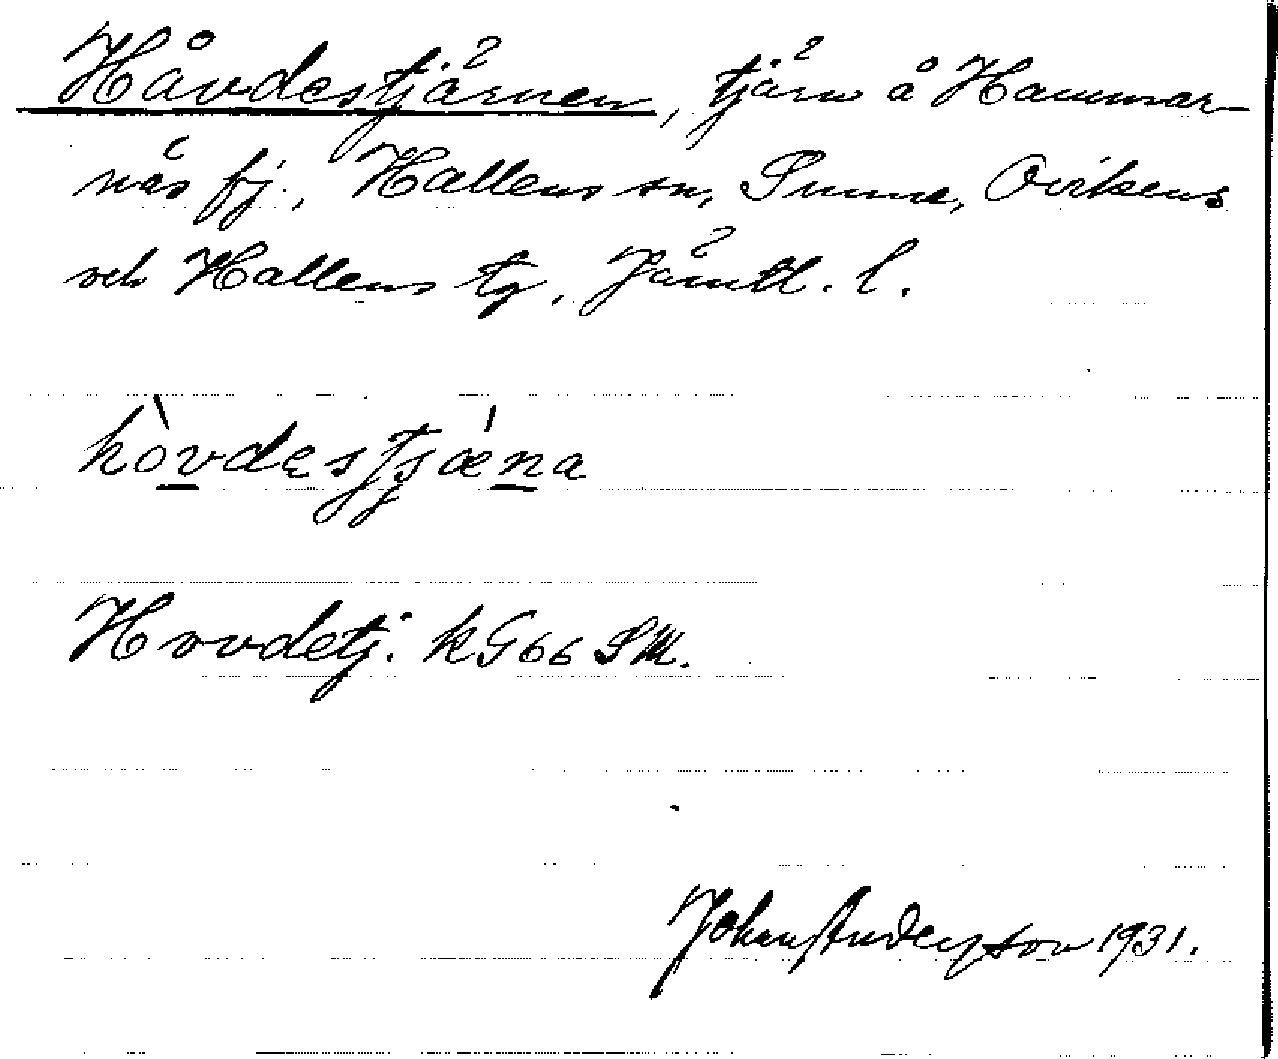 Håvdestjärnen, tjärn å Hammar-
näs fj., Hallens sn, Sunne, Ovikens
och Hallens tg, Jämtl. l.
hòvdestjǽna
Hovdetj. kG66 SM.
Johan Anderzson 1931.